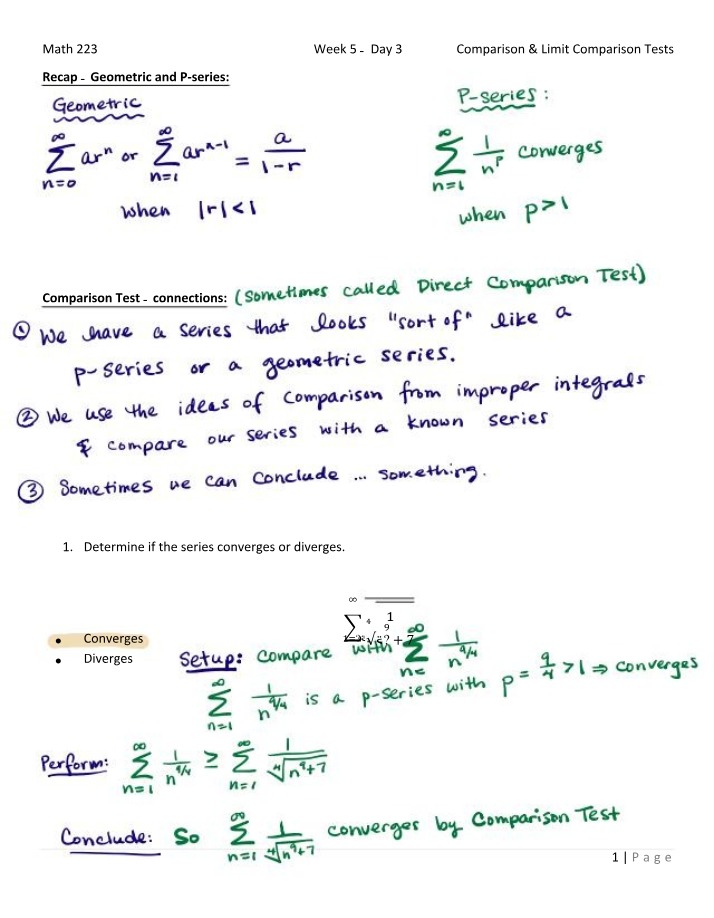 Math 223 Week 5 - Day 3 Comparison & Limit Comparison Tests
Recap - Geometric and P-series:
Geometric
P-series:
∑_{n=0}^{∞} ar^n or ∑_{n=1}^{∞} ar^{n-1} = a/(1-r)
when |r|<1
∑_{n=1}^{∞} 1/n^p converges
when p>1
Comparison Test - connections: (Sometimes called Direct Comparison Test)
① We have a series that looks "sort of" like a
p-series or a geometric series.
② We use the ideas of comparison from improper integrals
& compare our series with a known series
③ Sometimes we can conclude ... something.
1. Determine if the series converges or diverges.
• Converges
• Diverges
Setup: compare with ∑^{∞} 1/n^{9/4}
∑_{n=1}^{∞} 1/n^{9/4} is a p-series with p = 9/4 >1 ⇒ converges
Perform: ∑_{n=1}^{∞} 1/n^{9/4} ≥ ∑_{n=1}^{∞} 1/∜(n^9+7)
Conclude: So ∑_{n=1}^{∞} 1/∜(n^9+7) converges by Comparison Test
1 | Page